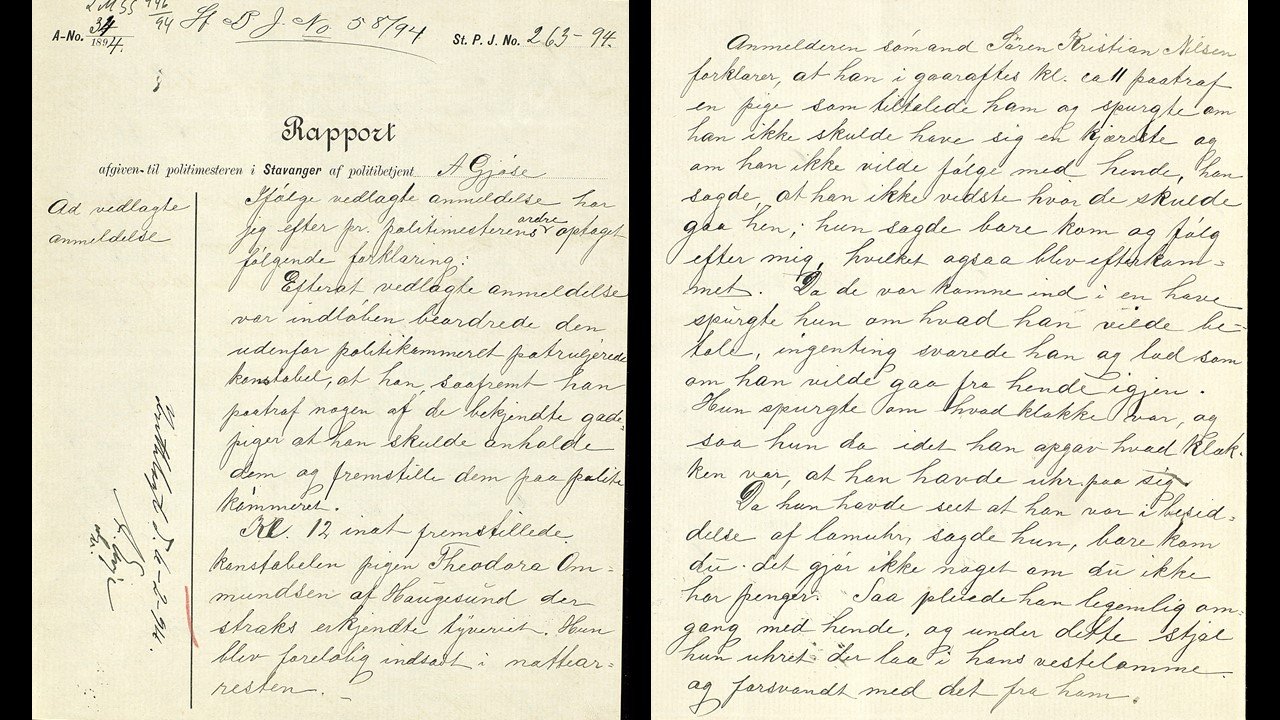 A-No. 34
1894.
St P J. No 58/94
St. P. J. No. 263-94.
Rapport
afgiven til politimesteren i Stavanger af politibetjent A Gjöse
Ad vedlagte
anmeldelse
Ifölge vedlagte anmeldelse har
jeg efter pr. politimesterens ordre optaget
følgende forklaring:
Efterat vedlagte anmeldelse
var indlöben beordrede den
udenfor politikammeret patruljerede
konstabel, at han, saafremt han
paatraf nogen af de bekjendte gade-
piger at han skulde anholde
dem og fremstille dem paa politi
kammeret.
Kl. 12 inat fremstillede
konstabelen pigen Theodora Om-
mundsen af Haugesund der
straks erkjendte tyveriet. Hun
blev foreløbig indsat i nattear-
resten.
Anmelderen sömand Sören Kristian Nilsen
forklarer, at han i gaaraftes kl. ca 11 paatraf
en pige som tiltalede ham og spurgte om
han ikke skulde have sig en kjæreste og
om han ikke vilde følge med hende, han
sagde, at han ikke vidste hvor de skulde
gaa hen; hun sagde bare kom og følg
efter mig, hvilket ogsaa blev efterkom-
met. Da de var komne ind i en have
spurgte hun om hvad han vilde be-
tale, ingenting svarede han og lod som
om han vilde gaa fra hende igjen.
Hun spurgte om hvad klokke var, og
saa hun da idet han opgav hvad klok-
ken var, at han havde uhr paa sig.
Da hun havde seet at han var i besid-
delse af lomuhr, sagde hun, bare kom
du. det gjör ikke noget om du ikke
har penger. Saa pleiede han legemlig om-
gang med hende, og under dette stjal
hun uhret der laa i hans vestelomme
og forsvandt med det fra ham.